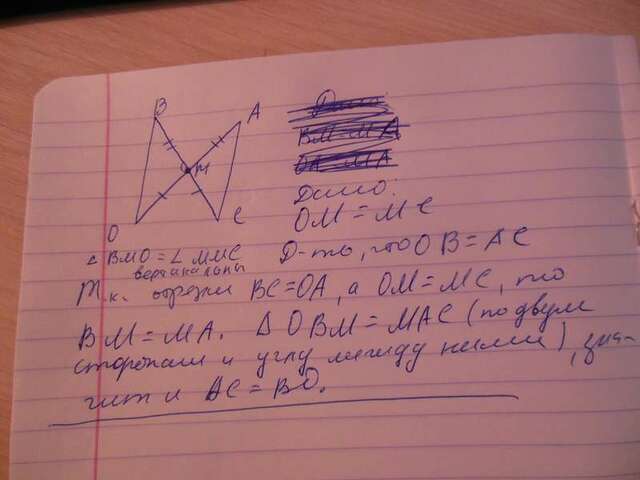 B
A
M
O
C
Дано:
OM = MC
∠ BMO = ∠ MMC
вертикальны
Д-ть, что OB = AC
Т.к. отрезки BC=OA, а OM=MC, то
BM = MA. Δ OBM = MAC (по двум
сторонам и углу между ними), зна-
чит и AC = BO.